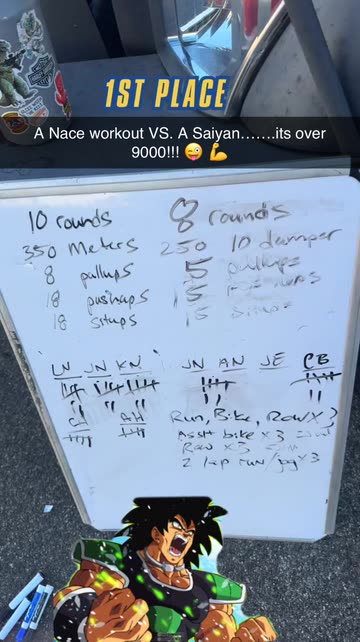 1ST PLACE
A Nace workout VS. A Saiyan.......its over
9000!!! 😜 💪
10 rounds
350 Meters
8 pullups
18 pushups
18 situps
8 rounds
250 10 damper
5 pullups
15
15 situps
LN JN KN
JN AN JE CB
AH
Run, Bike, Row x 3
Asslt bike x 3
Row x 3
2 lap run/jog x 3